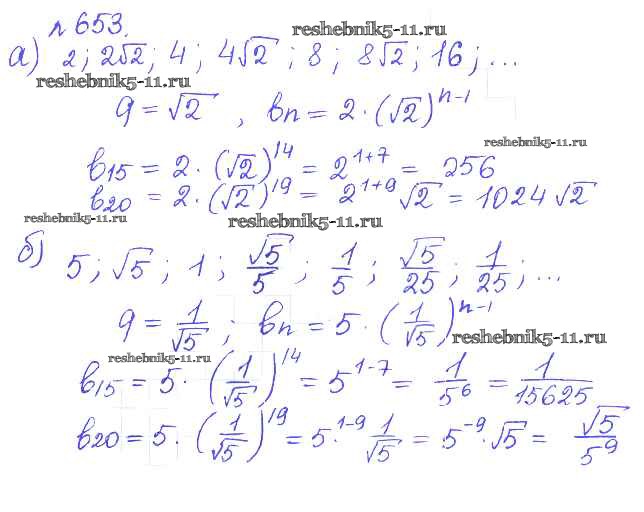 № 653.
reshebnik5-11.ru
а) 2; 2√2; 4; 4√2; 8; 8√2; 16; ...
reshebnik5-11.ru
q = √2, bn = 2·(√2)^(n-1)
reshebnik5-11.ru
b15 = 2·(√2)^14 = 2^(1+7) = 256
b20 = 2·(√2)^19 = 2^(1+9) √2 = 1024√2
reshebnik5-11.ru reshebnik5-11.ru
б) 5; √5; 1; √5/5; 1/5; √5/25; 1/25; ...
q = 1/√5; bn = 5·(1/√5)^(n-1)
reshebnik5-11.ru
reshebnik5-11.ru
b15 = 5·(1/√5)^14 = 5^(1-7) = 1/5^6 = 1/15625
b20 = 5·(1/√5)^19 = 5^(1-9)·1/√5 = 5^(-9)·√5 = √5/5^9